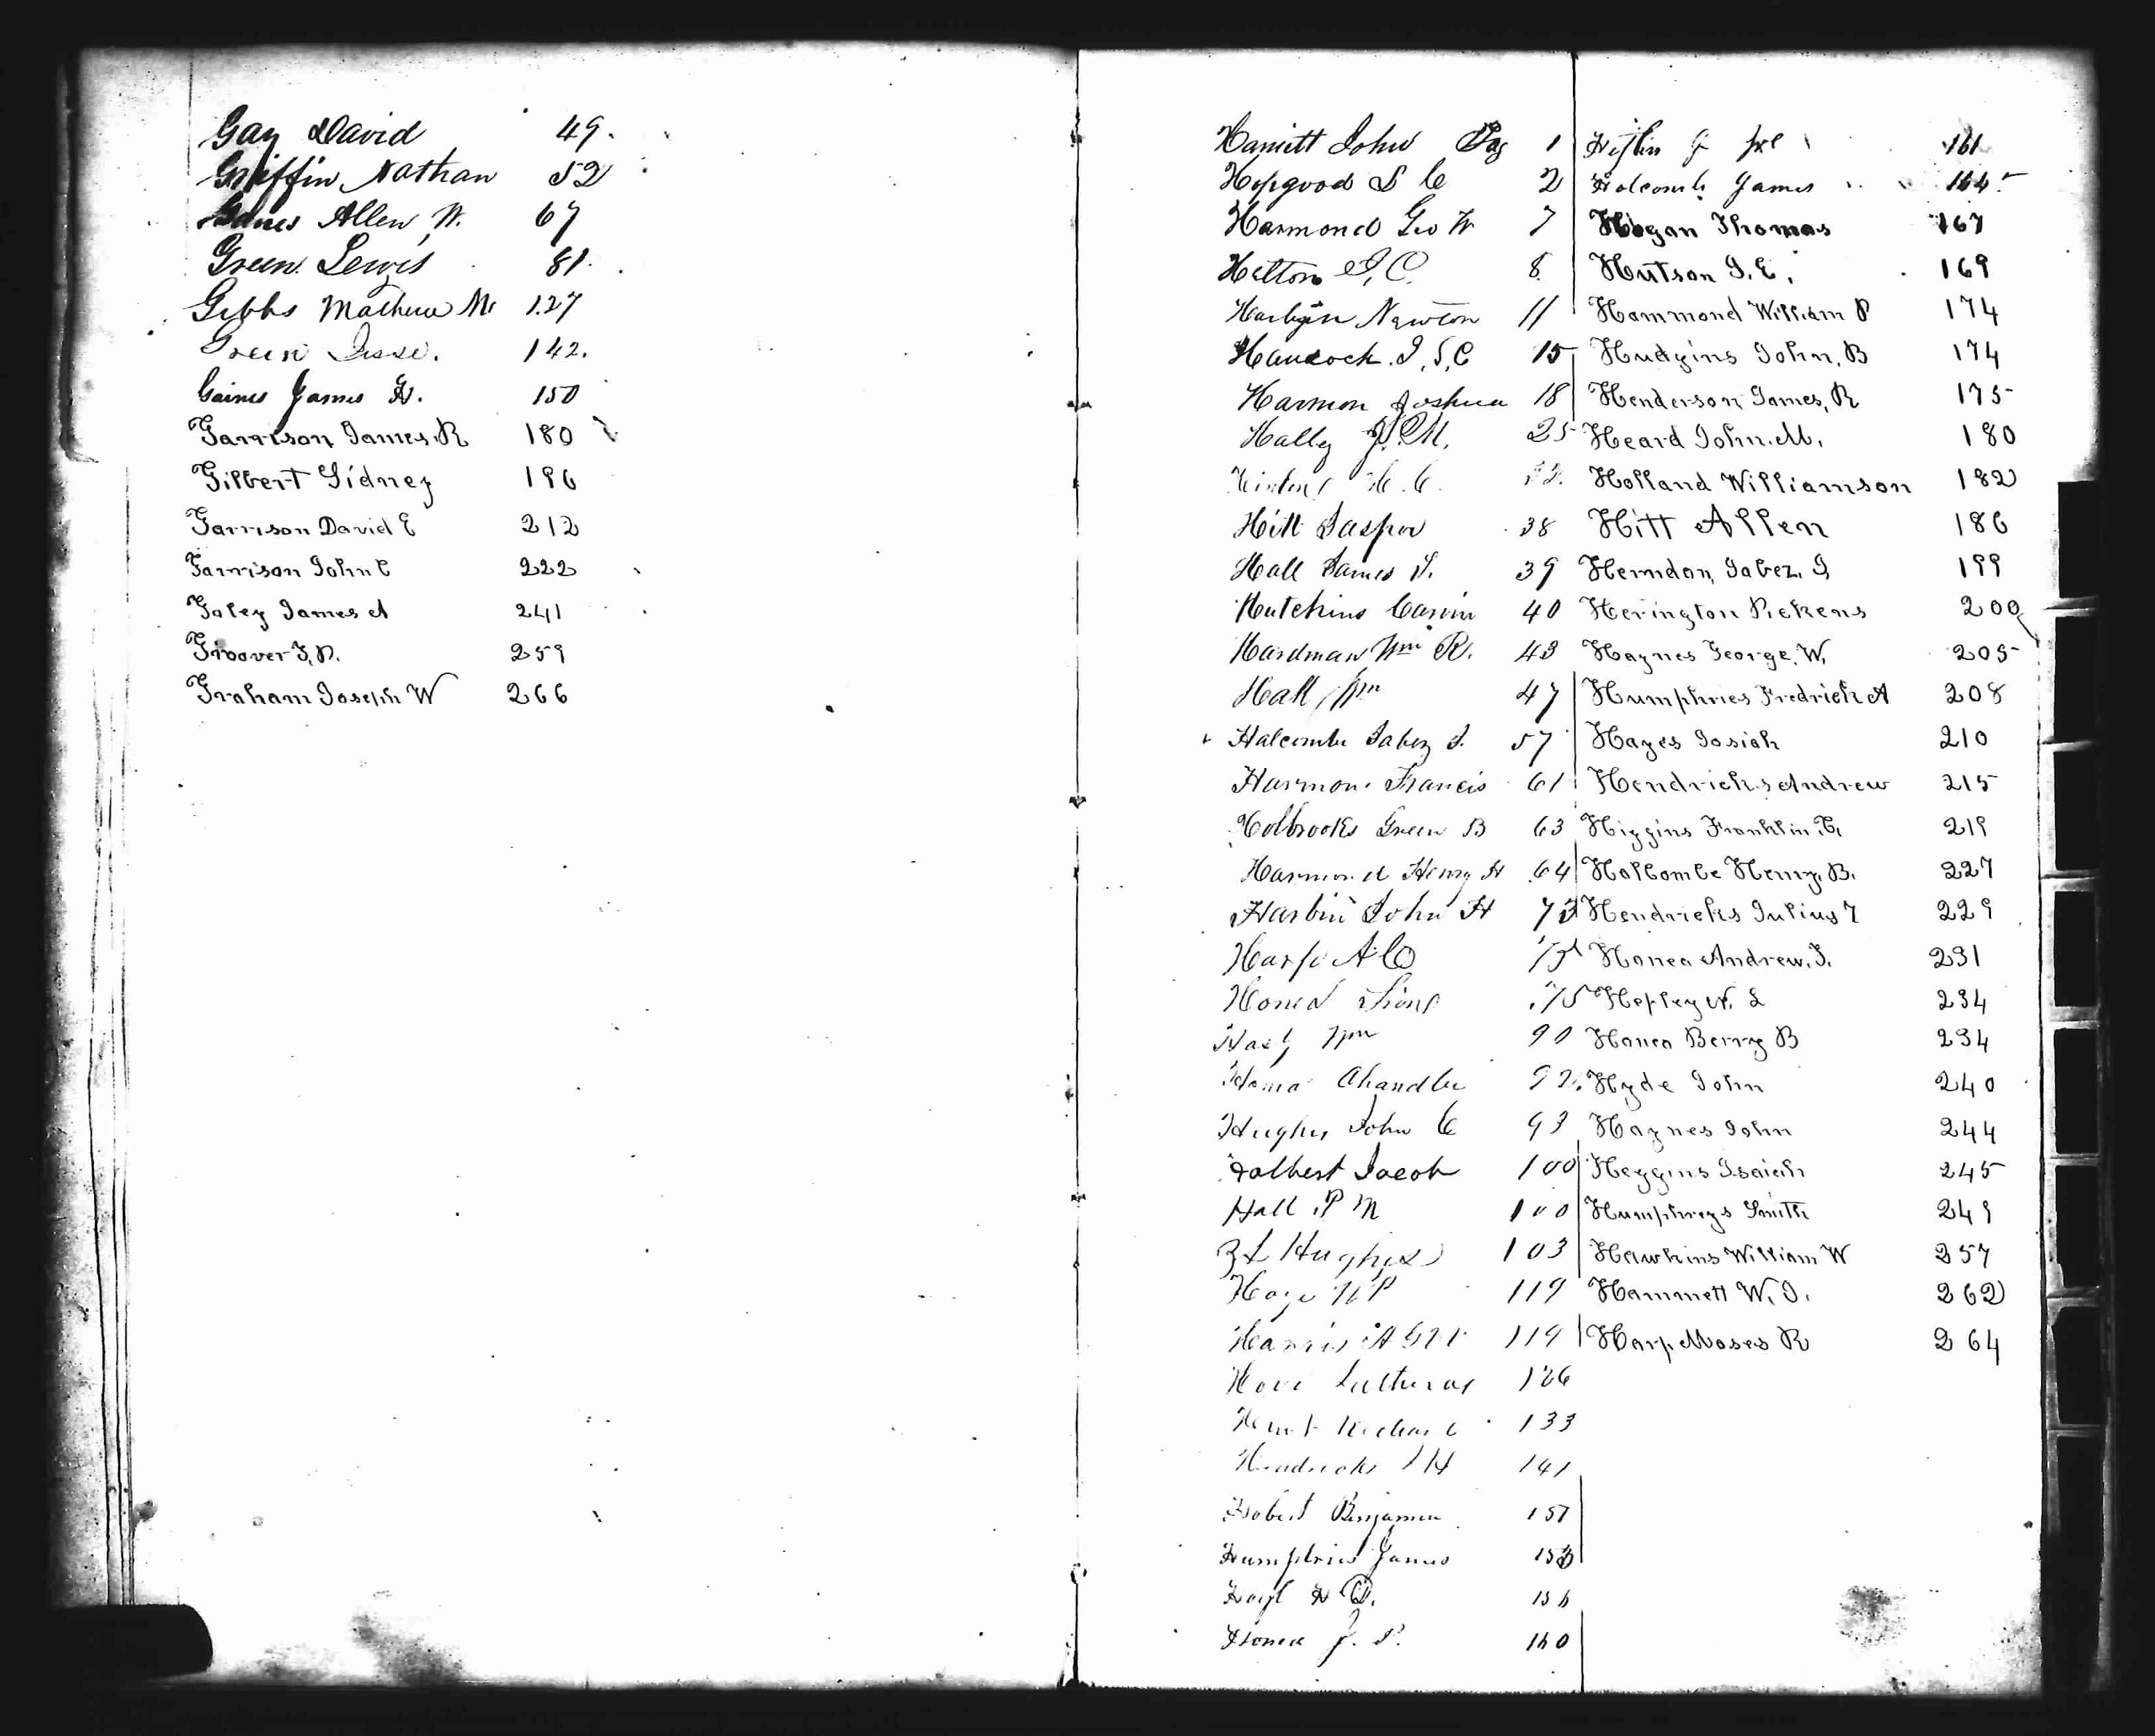 Gay David 49.
Griffin Nathan 52
Gaines Allen W. 67
Green Lewis 81.
Gibbs Mathew M 127
Green Jesse. 142.
Gaines James H. 150
Garrison James, R 180
Gilbert Sidney 196
Garrison David E 212
Garrison John C 222
Goley James A 241
Groover J, P. 259
Graham Joseph W 266
Hamitt John Pag 1
Hopgood S C 2
Hammond Geo W 7
Hilton J, C. 8
Newton 11
Hancock. J, S, C 15
Harmon Joshua 18
Halley J. M. 25
Hitt Jasper 38
Hall James J. 39
Hutchins 40
Hardman Wm R. 43
Hall Wm 47
Halcombe Jabez J. 57
Harmon Francis 61
Holbrooks Green B 63
Hammond Henry H 64
Harbin John H 73
Harp A C
Honea 75
Wm 90
Chandler 92
Hughes John C 93
Holbert Jacob 100
Hall P M 100
Z L Hughes 103
119
Harris 119
126
Hunt Richard 133
Hendricks 141
Benjamin 157
Humphries James
H
Honea J. P. 160
161
Holcomb James 164
Hogan Thomas 167
Hutson J. E. 169
Hammond William P 174
Hudgins John, B 174
Henderson James, R 175
Heard John. M. 180
Holland Williamson 182
Hitt Allen 186
Herndon, Jabez, J, 199
Herington Pickens 200
Haynes George, W, 205
Humphries Fredrick A 208
Hayes Josiah 210
Hendricks Andrew 215
Higgins Franklin, C, 219
Holcombe Henry, B. 227
Hendricks Julius T 229
Honea Andrew, J. 231
Hepley N. L 234
Honea Berry B 234
Hyde John 240
Haynes John 244
Heggins Isaiah 245
Humphreys Smith 249
Hawkins William W 257
Hammett W, J. 262
Harp Moses R 264